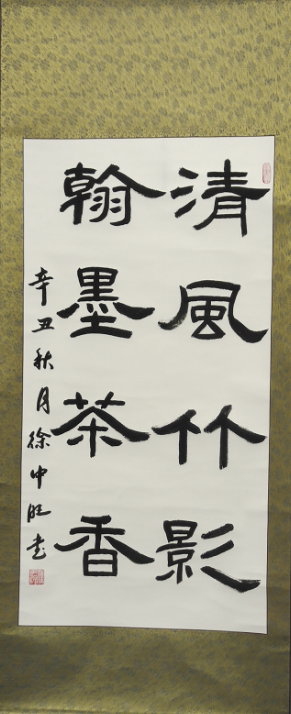 清風竹影
翰墨茶香
辛丑秋月徐中旺书